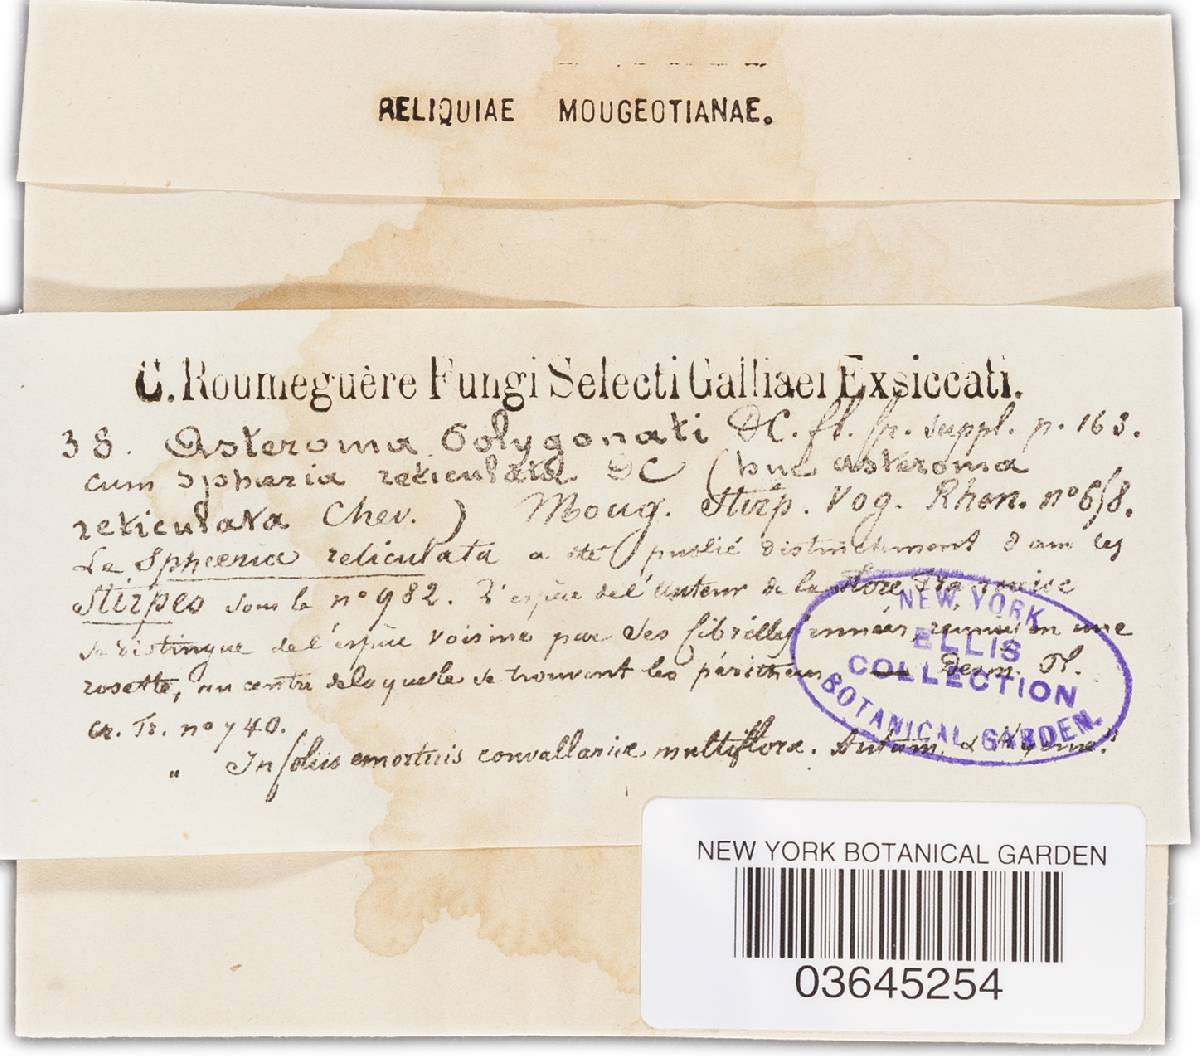 RELIQUIAE MOUGEOTIANAE.
C. Roumeguère Fungi Selecti Galliaei Exsiccati.
38. Asteroma Polygonati DC. fl. fr. suppl. p. 163.
cum Spheria reticulata DC (huc asteroma
reticulata Chev.) Moug. Stirp. Vog. Rhen. nº 658.
Le Sphœria reticulata a été publié distinctement dans les
Stirpes sous le nº 982. L'espèce de l'auteur de la flore française
se distingue de l'espèce voisine par des fibrilles innées, réunies en une
rosette, au centre de laquelle se trouvent les périthecium Desm. Pl.
cr. Fr. nº 740.
" In foliis emortuis convallariæ multifloræ. Autum. & Hyeme.
NEW YORK
ELLIS
COLLECTION
BOTANICAL GARDEN.
NEW YORK BOTANICAL GARDEN
03645254